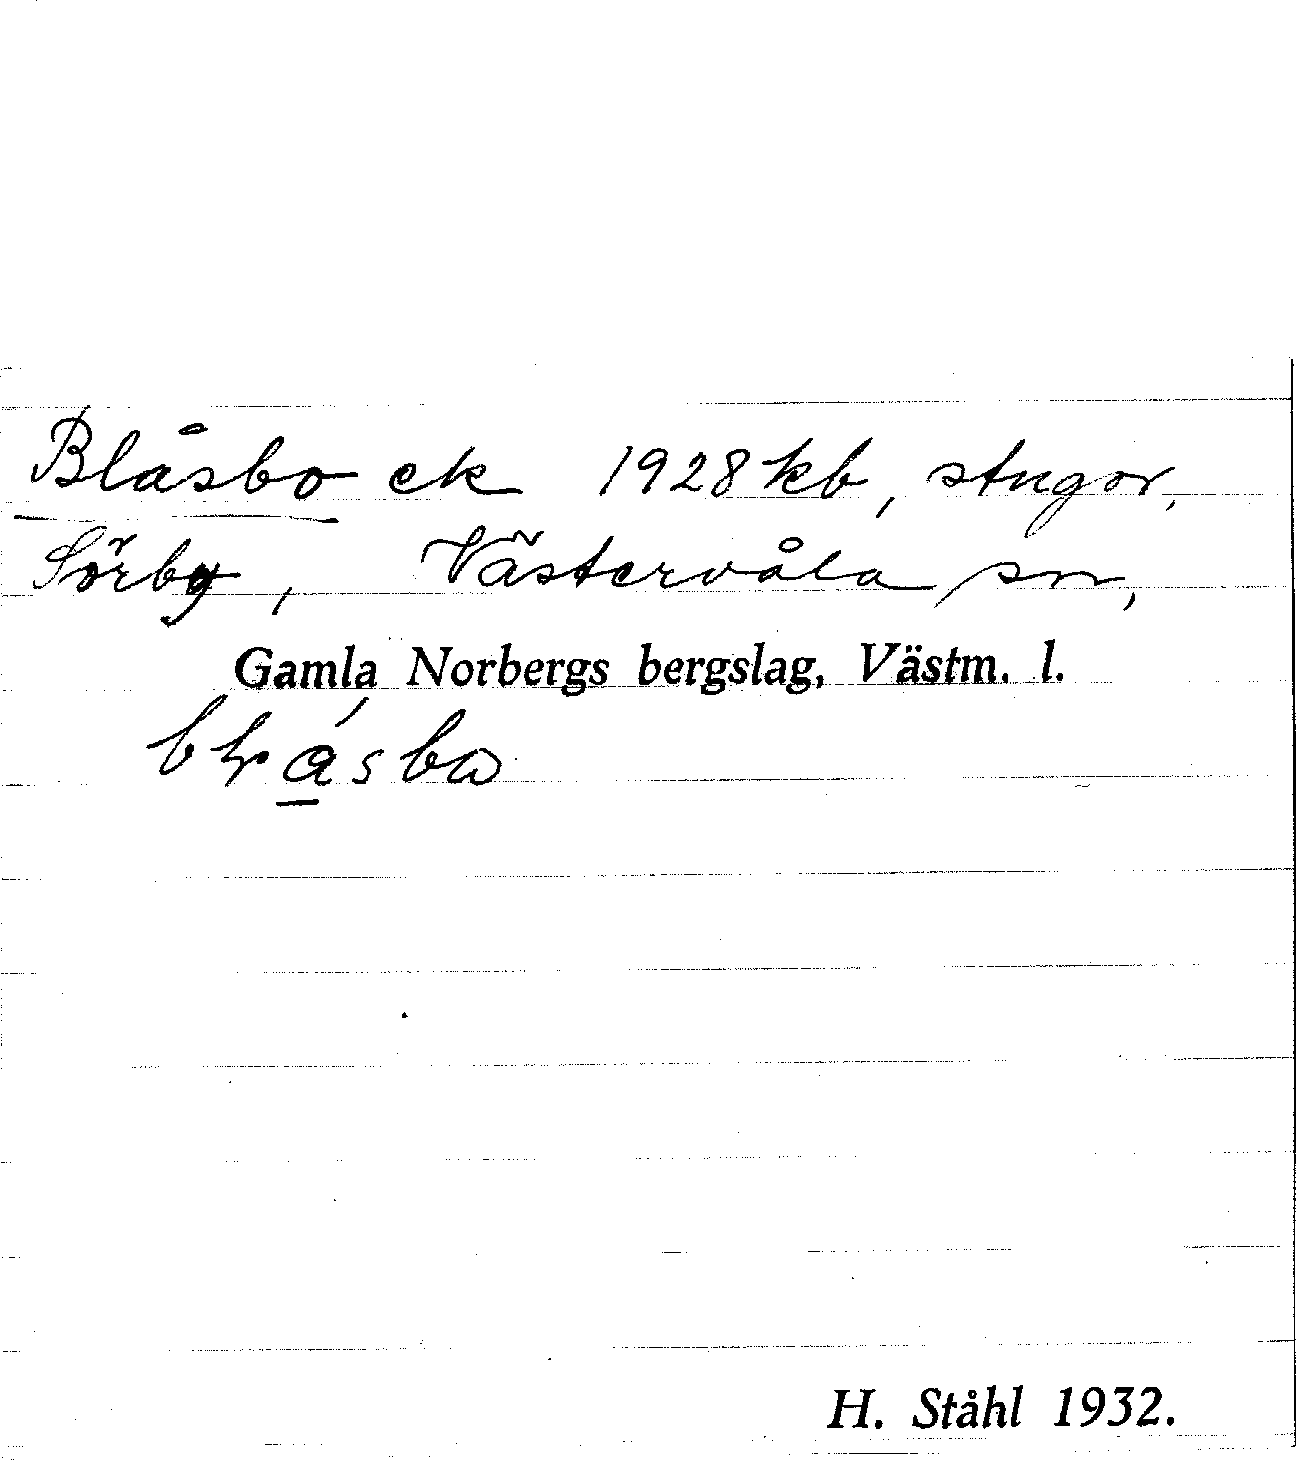 Blåsbo ek 1928 kb, stugor,
Sörby, Västervåla sn,
Gamla Norbergs bergslag, Västm. l.
H. Ståhl 1932.